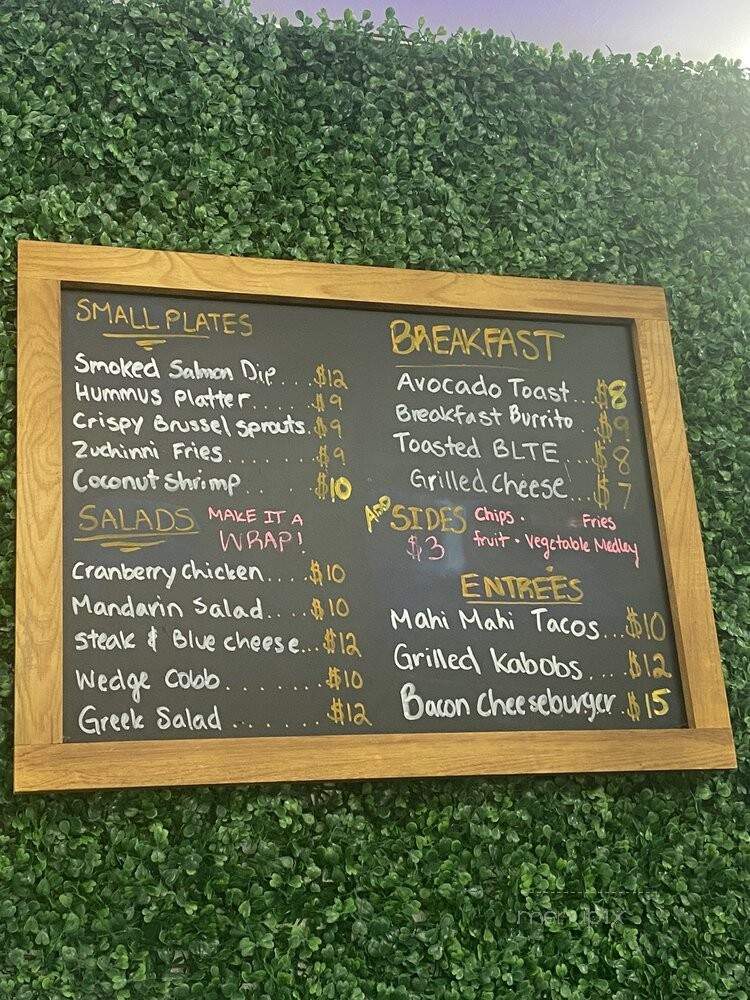 SMALL PLATES
Smoked Salmon Dip....$12
Hummus Platter......$9
Crispy Brussel sprouts.$9
Zuchinni Fries........$9
Coconut Shrimp.. .....$10
SALADS MAKE IT A
WRAP!
Cranberry Chicken....$10
Mandarin Salad....$10
Steak & Blue cheese...$12
Wedge Cobb........$10
Greek Salad........$12
BREAKFAST
Avocado Toast...$8
Breakfast Burrito..$9
Toasted BLTE...$8
Grilled Cheese...$7
ADD SIDES Chips · Fries
$3 fruit · Vegetable Medley
ENTREES
Mahi Mahi Tacos...$10
Grilled Kabobs....$12
Bacon Cheeseburger.$15
menupix